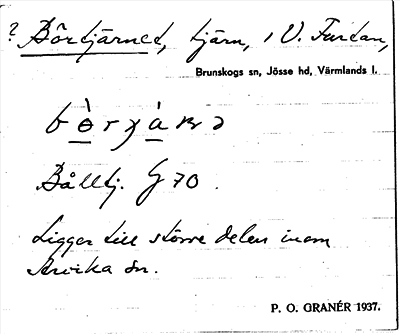 ? Börtjärnet, tjärn, i V. Furtan,
Brunskogs sn, Jösse hd, Värmlands l.
Bålltj. G 70.
Ligger till större delen inom
Arvika sn.
P. O. GRANÉR 1937.